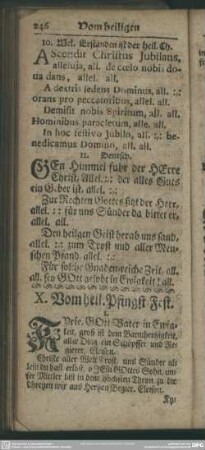 246 Vom heiligen
10. Mel. Erstanden ist der heil. Ch.
AScendit Christus Jubilans,
alleluja, all. de cœlo nobis do-
na dans, allel. all.
A dextris sedens Dominus, all. :,:
orans pro peccatoribus, allel. all.
Demisit nobis Spiritum, all. all.
Hominibus paracletum, alle. all.
In hoc festivo Jubilo, all. :,: be-
nedicamus Domino, all. all.
11. Deutsch.
GEn Himmel fuhr der HErre
Christ. Allel. :,: der alles Guts
ein G.ber ist. allel. :,:
Zur Rechten Gottes sitzt der Herr,
allel. :,: für uns Sünder da bittet er,
allel. all.
Den heilgen Geist herab uns sand,
allel. :,: zum Trost und aller Men-
schen Pfand. allel. :,:
Für solche Gnadenreiche Zeit. all.
all. sey GOtt gelobt in Ewigkeit! all.
X. Vom heil. Pfingst Fest.
1.
KYrie, GOtt Vater in Ewig-
keit, groß ist dein Barmhertzigkeit,
aller Ding ein Schöpffer und Re-
gierer. Eleison.
Christe aller Welt Trost, uns Sünder al-
lein du hast erlöst, o JEsu GOttes Sohn, un-
ser Mittler bist in dem höchsten Thron zu dir
schreyen wir aus Hertzen Begier. Eleison.
Ky-